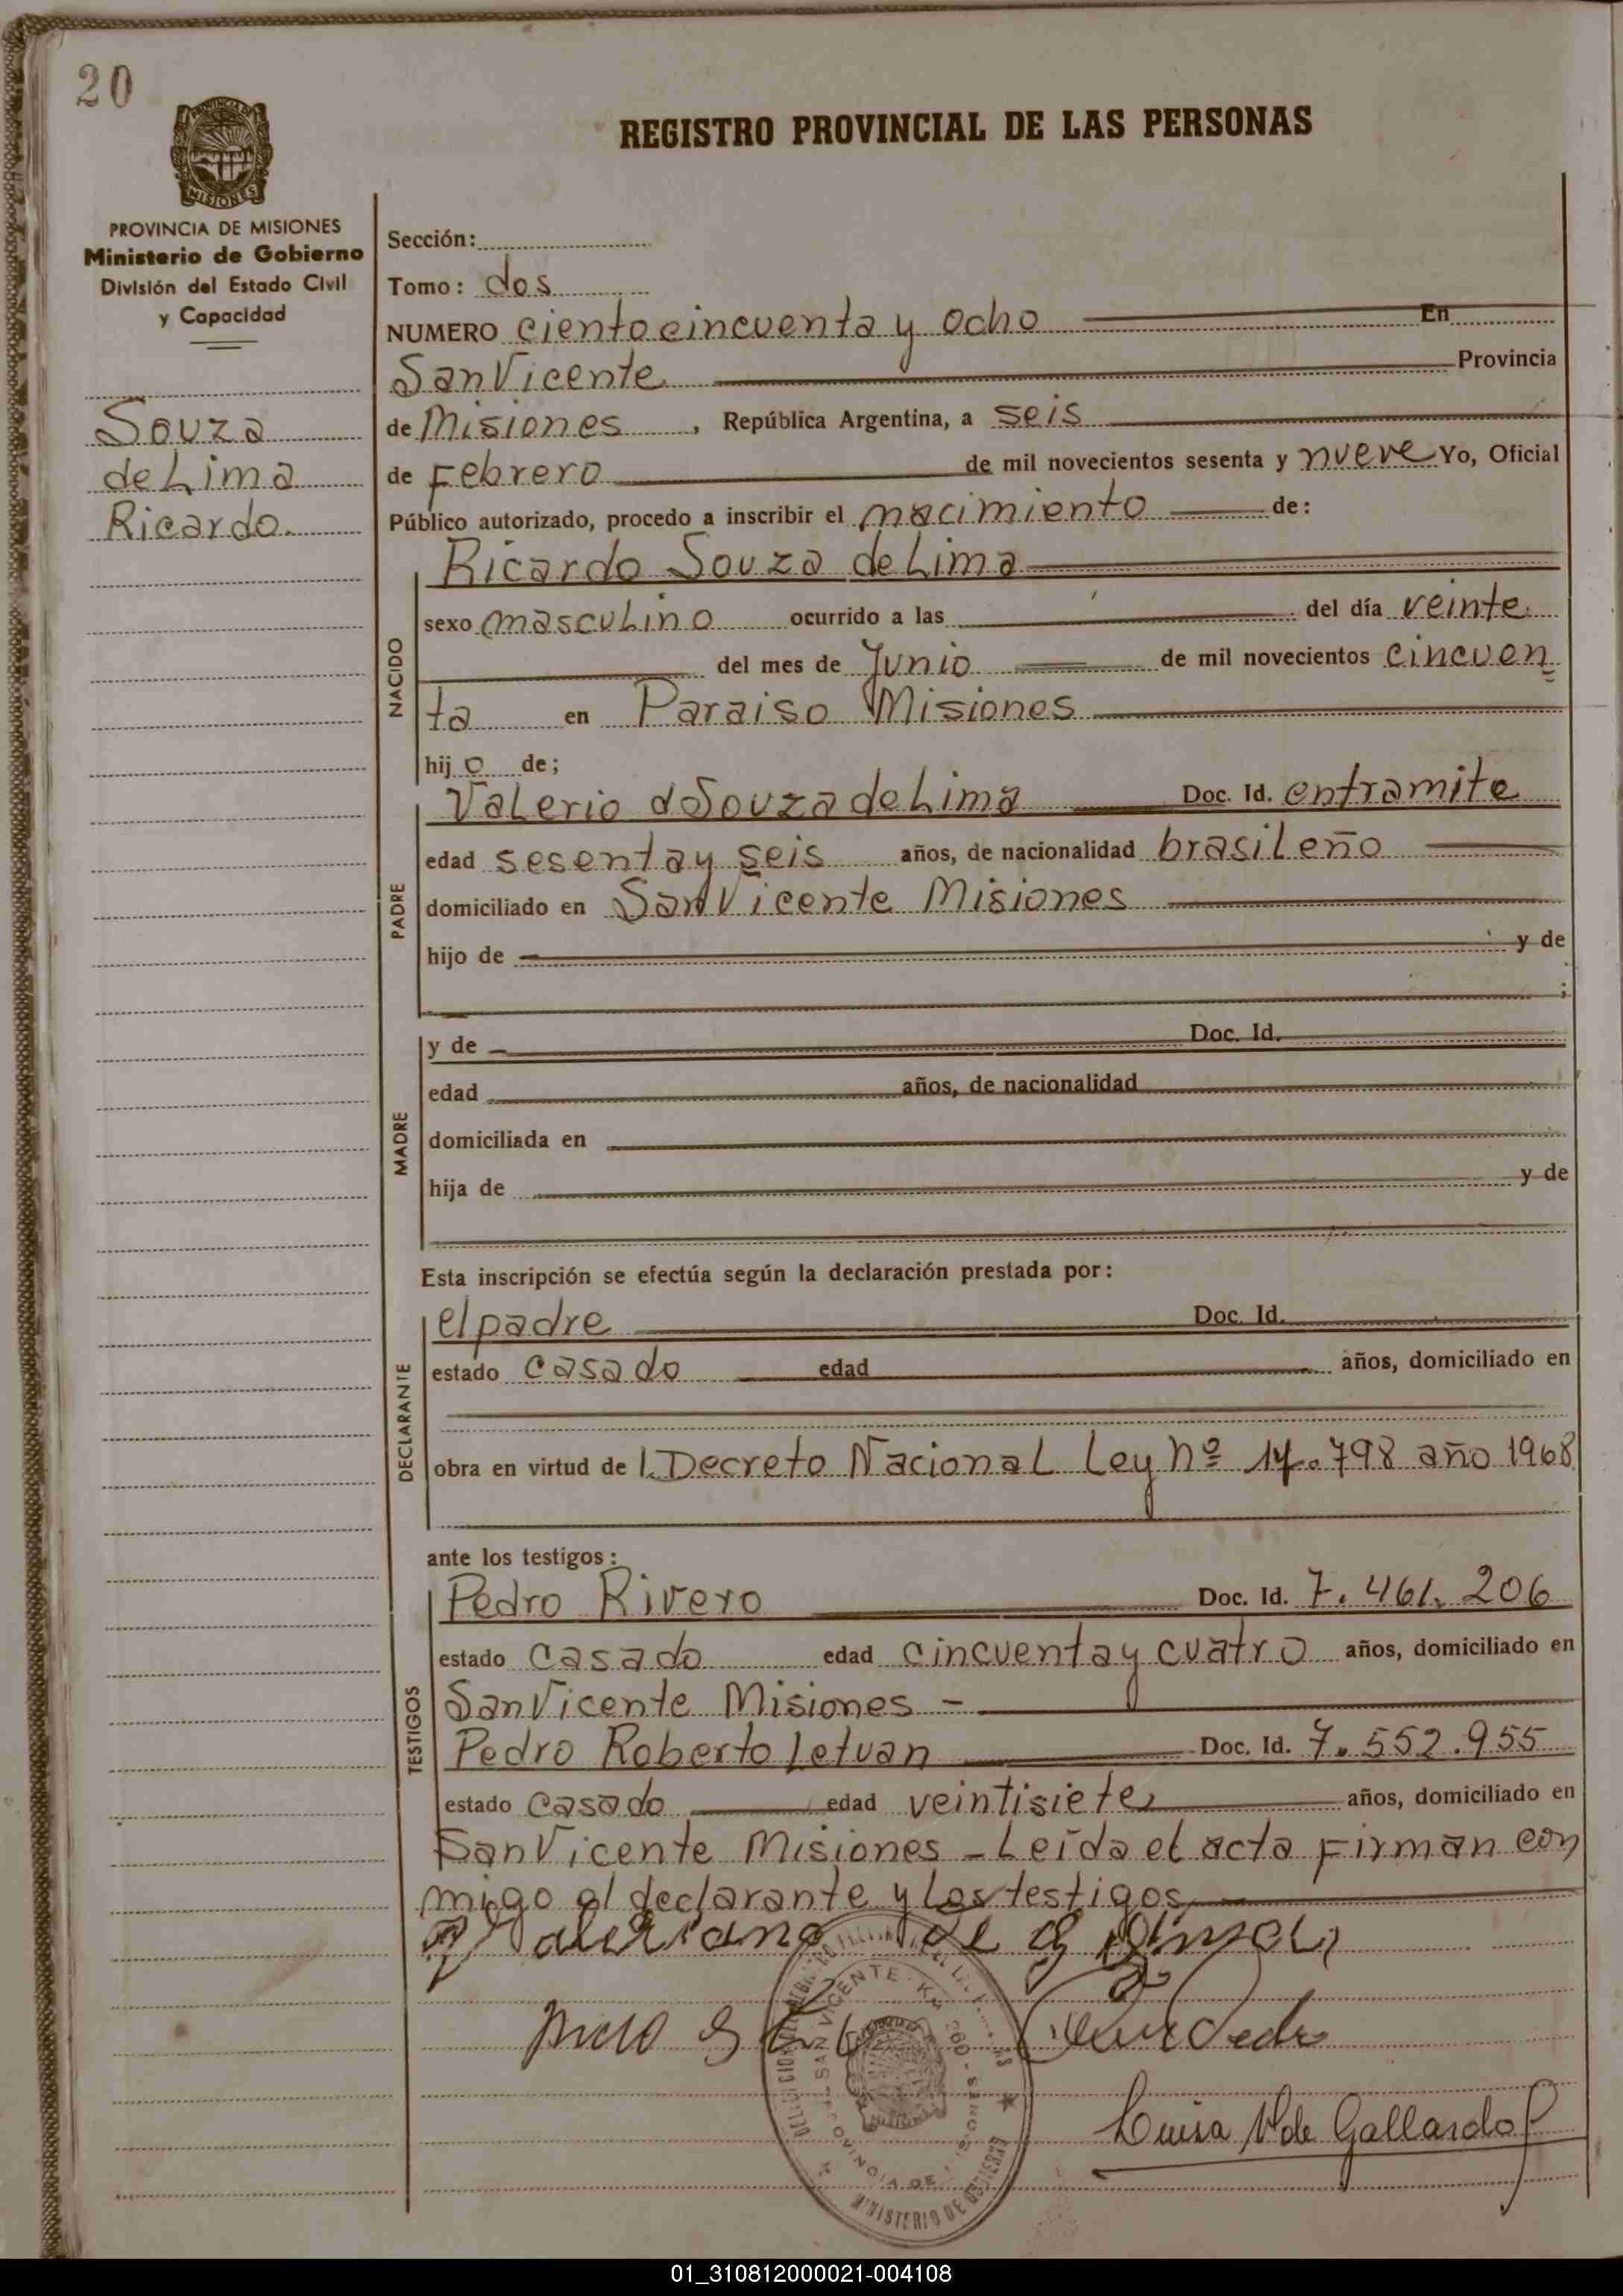 20
REGISTRO PROVINCIAL DE LAS PERSONAS
PROVINCIA DE MISIONES
Ministerio de Gobierno
División del Estado Civil
y Capacidad
Souza
de Lima
Ricardo.
Sección:
Tomo: dos
NUMERO ciento cincuenta y ocho En
San Vicente Provincia
de Misiones, República Argentina, a seis
de Febrero de mil novecientos sesenta y nueve Yo, Oficial
Público autorizado, procedo a inscribir el nacimiento de:
NACIDO
Ricardo Souza de Lima
sexo masculino ocurrido a las del día veinte
del mes de Junio de mil novecientos cincuen
ta en Paraiso Misiones
hijo de;
PADRE
Valerio de Souza de Lima Doc. Id. en tramite
edad sesenta y seis años, de nacionalidad brasileño
domiciliado en San Vicente Misiones
hijo de y de
;
MADRE
y de Doc. Id.
edad años, de nacionalidad
domiciliada en
hija de y de
Esta inscripción se efectúa según la declaración prestada por:
DECLARANTE
el padre Doc. Id.
estado casado edad años, domiciliado en
obra en virtud de l. Decreto Nacional Ley Nº 17.798 año 1968
ante los testigos:
TESTIGOS
Pedro Rivero Doc. Id. 7.461.206
estado casado edad cincuenta y cuatro años, domiciliado en
San Vicente Misiones -
Pedro Roberto Letvan Doc. Id. 7.552.955
estado casado edad veintisiete años, domiciliado en
San Vicente Misiones - Leída el acta firman con
migo el declarante y los testigos
SAN VICENTE - KM 200 -
PROVINCIA DE
MINISTERIO DE GOBIERNO
Luisa V de Gallardo
01_310812000021-004108